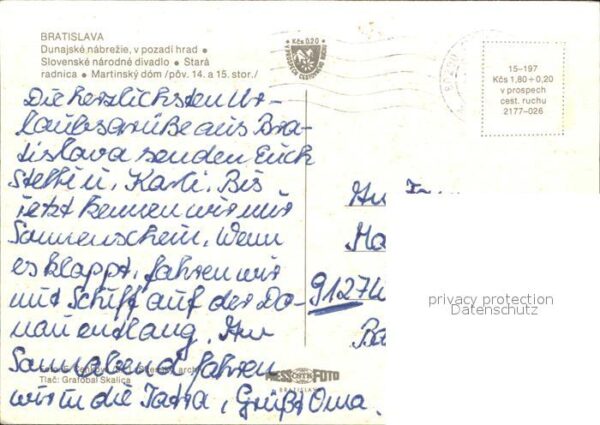 BRATISLAVA
Dunajské nábrežie, v pozadí hrad •
Slovenské národné divadlo • Stará
radnica • Martinský dóm /pôv. 14. a 15. stor./
Kčs 0,20
V PROSPECH CESTOVNÉHO RUCHU
15–197
Kčs 1,80 + 0,20
v prospech
cest. ruchu
2177–026
Die herzlichsten Ur-
laubsgrüße aus Bra-
tislava senden Euch
Steffi u. Karli. Bis
jetzt kennen wir nur
Sonnenschein. Wenn
es klappt, fahren wir
mit Schiff auf der Do-
nau entlang. Am
Sonnabend fahren
wir in die Tatra, Grüßt Oma.
An
Ma
9127
Ba
privacy protection
Datenschutz
Tlač: Grafobal Skalica
PRESSFOTO
BRATISLAVA